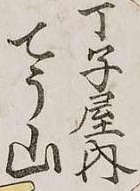 丁子屋内
てう山